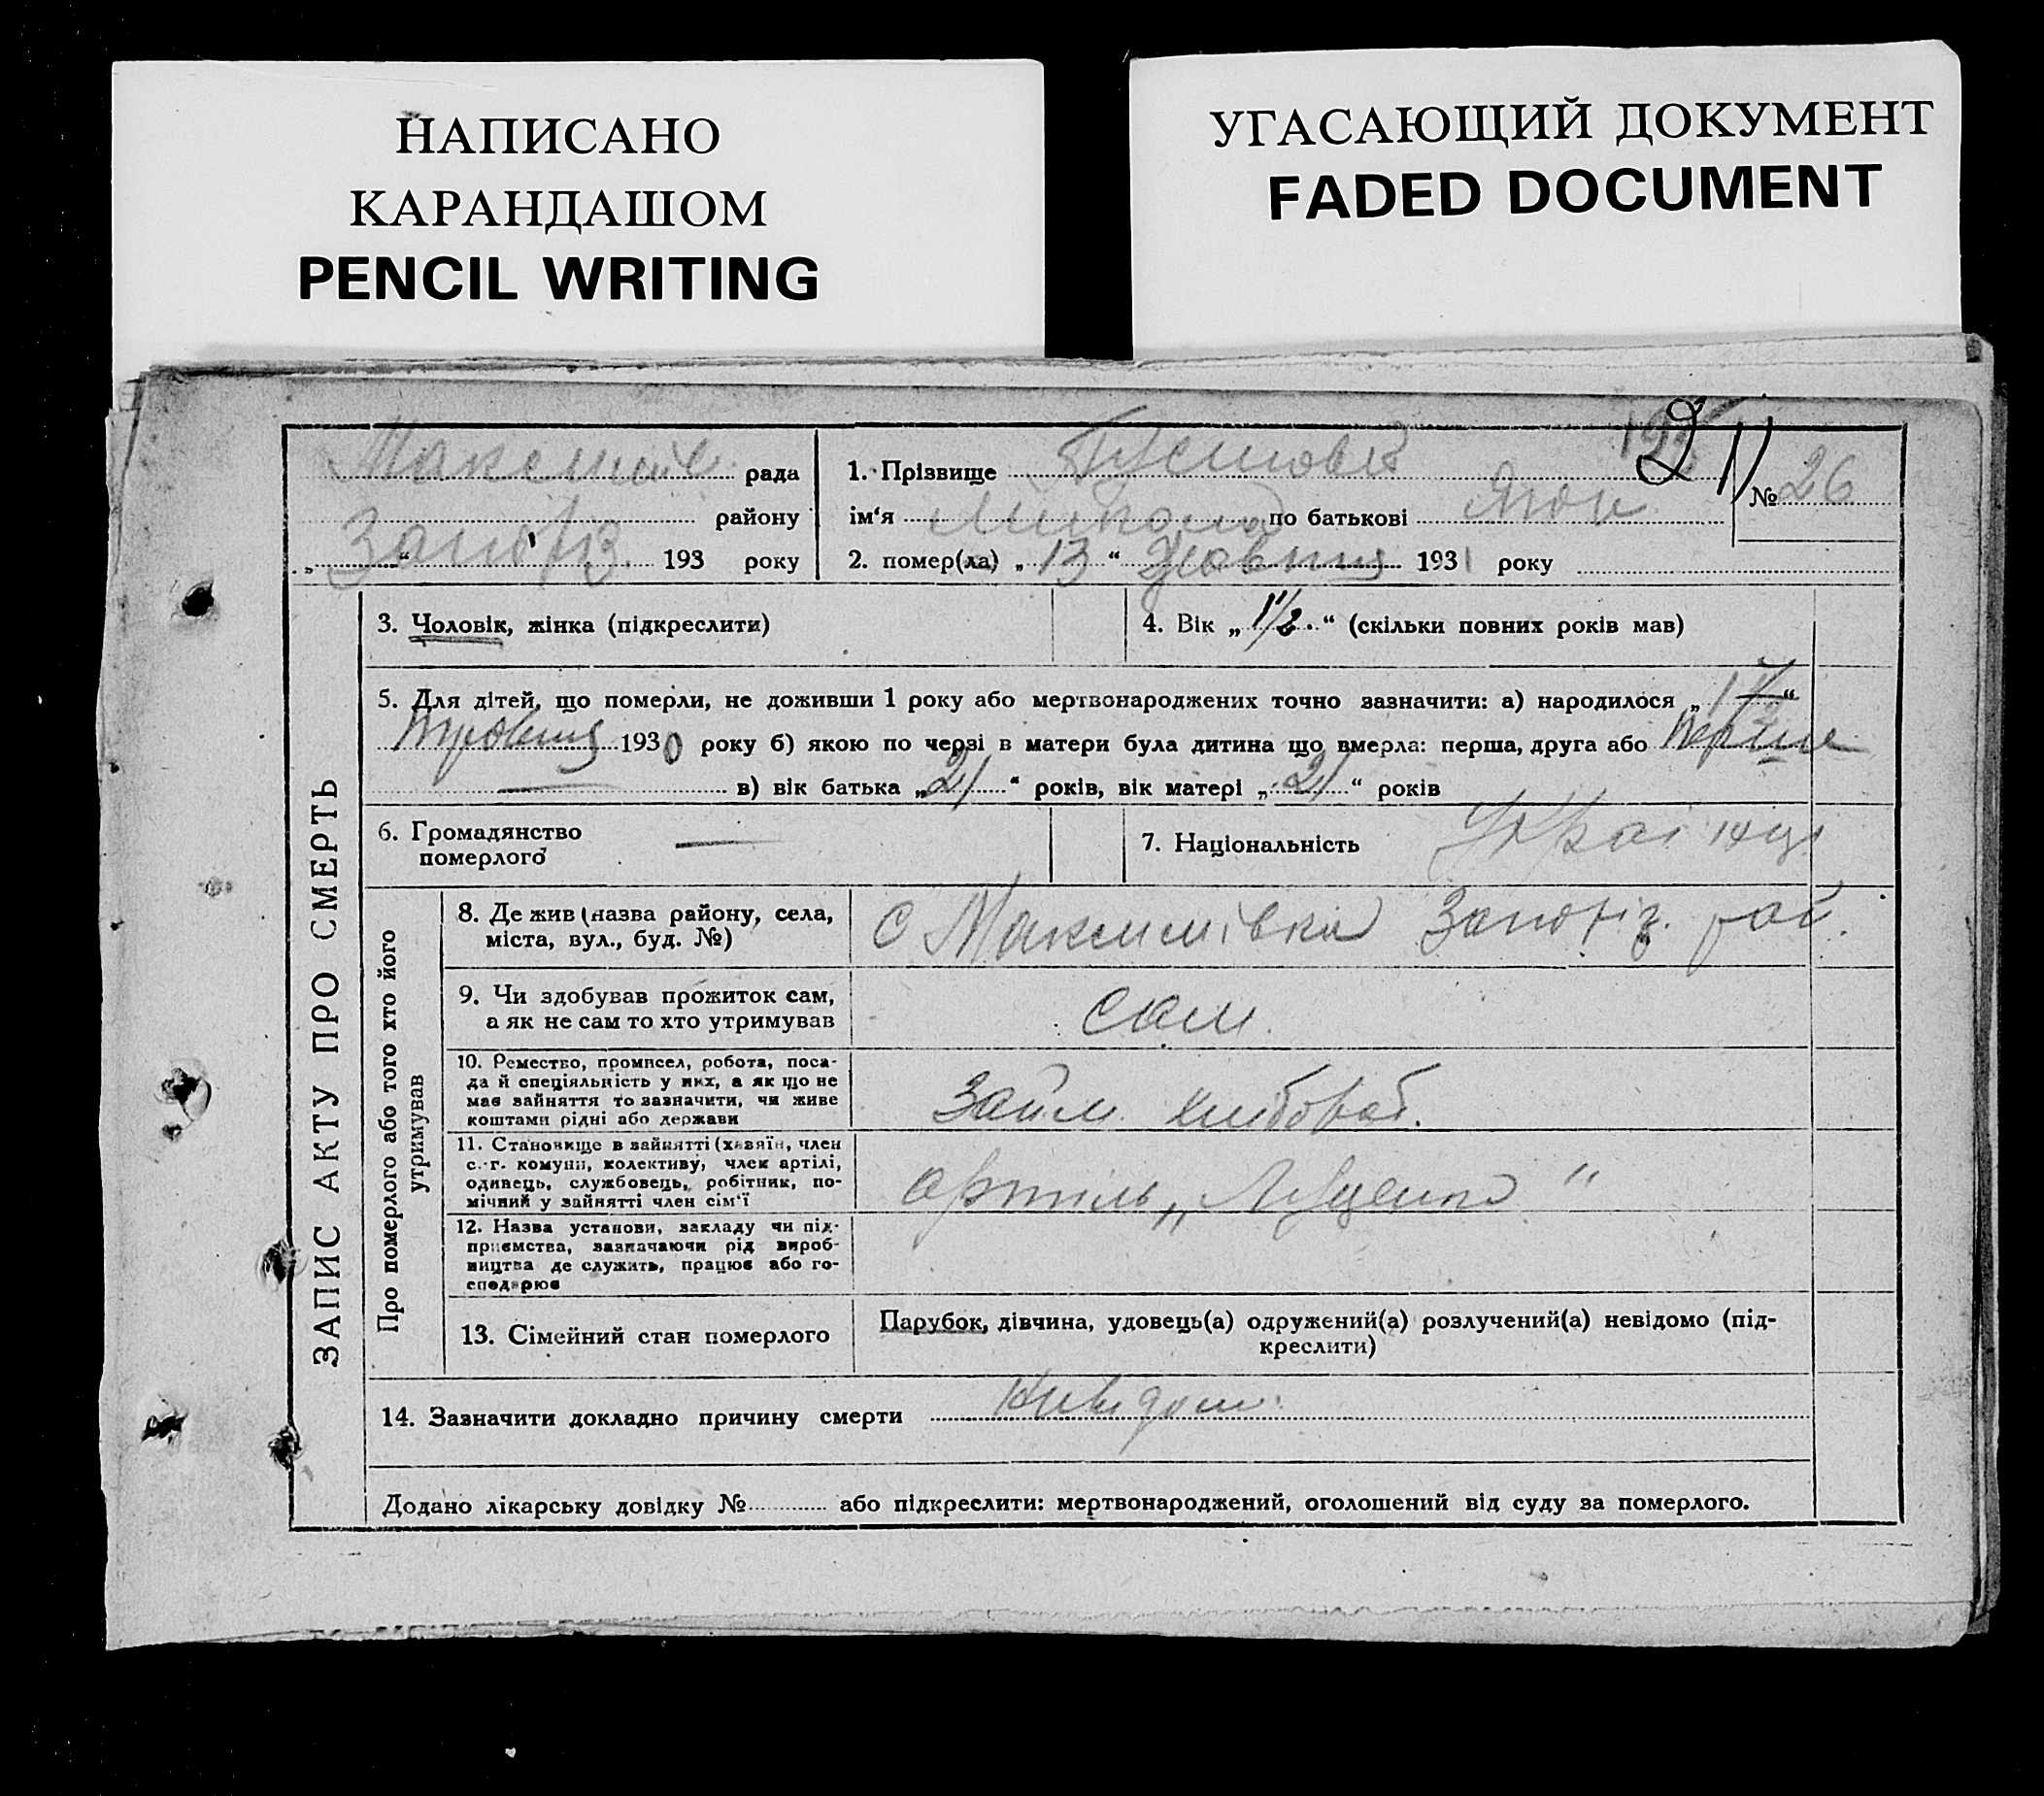 НАПИСАНО
КАРАНДАШОМ
PENCIL WRITING
УГАСАЮЩИЙ ДОКУМЕНТ
FADED DOCUMENT
рада
району
„ “ 193 року
1. Прізвище
ім‘я по батькові
№ 26
2. помер(ла) „ 13 “ Жовтня 1931 року
ЗАПИС АКТУ ПРО СМЕРТЬ
3. Чоловік, жінка (підкреслити)
4. Вік „ 1 1/2 “ (скільки повних років мав)
5. Для дітей, що померли, не доживши 1 року або мертвонароджених точно зазначити: а) народилося „ “
1930 року б) якою по черзі в матери була дитина що вмерла: перша, друга або
в) вік батька „ 21 “ років, вік матері „ 21 “ років
6. Громадянство
померлого
7. Національність
Про померлого або того хто його
утримував
8. Де жив (назва району, села,
міста, вул., буд. №)
с Максимівка Запоріз. рай.
9. Чи здобував прожиток сам,
а як не сам то хто утримував
сам
10. Ремество, промисел, робота, поса-
да й спеціяльність у них, а як що не
має зайняття то зазначити, чи живе
коштами рідні або держави
11. Становище в зайнятті (хазяїн, член
с.-г. комуни, колективу, член артілі,
одинець, службовець, робітник, по-
мічний у зайнятті член сім‘ї
артіль „ “
12. Назва установи, закладу чи під-
приємства, зазначаючи рід вироб-
ництва де служить, працює або го-
сподарює
13. Сімейний стан померлого
Парубок, дівчина, удовець(а) одружений(а) розлучений(а) невідомо (під-
креслити)
14. Зазначити докладно причину смерти
Додано лікарську довідку № або підкреслити: мертвонароджений, оголошений від суду за померлого.